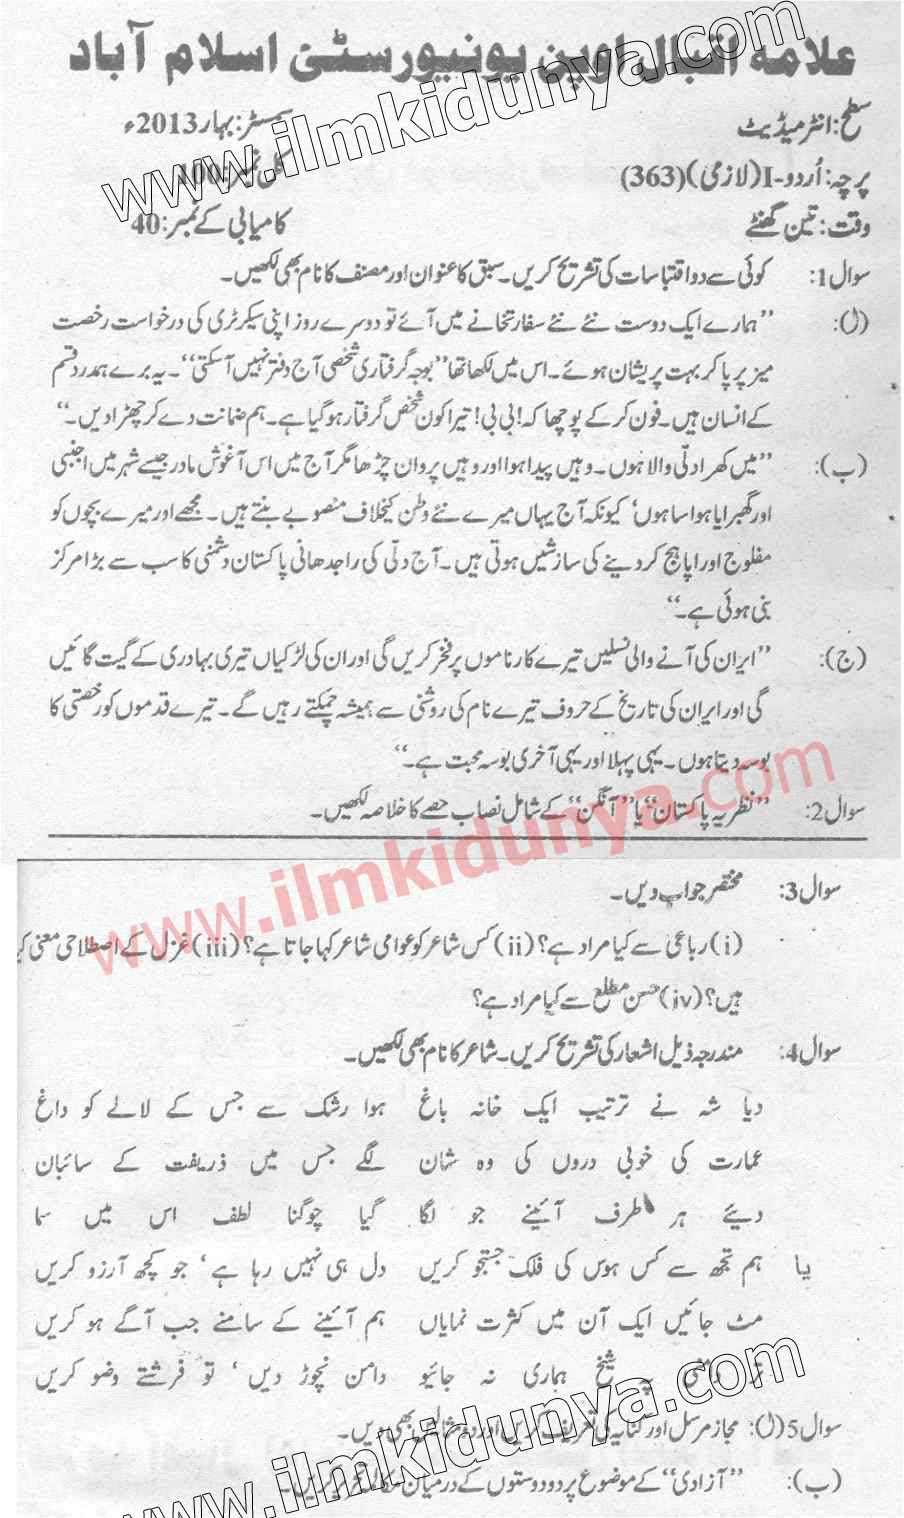 علامہ اقبال اوپن یونیورسٹی اسلام آباد
سطح: انٹرمیڈیٹ سمسٹر: بہار 2013ء
پرچہ: اُردو-I (لازمی) (363) کل نمبر: 100
وقت: تین گھنٹے کامیابی کے نمبر: 40
سوال 1: کوئی سے دو اقتباسات کی تشریح کریں۔ سبق کا عنوان اور مصنف کا نام بھی لکھیں۔
(ا): ”ہمارے ایک دوست نئے نئے سفارتخانے میں آئے تو دوسرے روز اپنی سیکرٹری کی درخواست رخصت
میز پر پا کر بہت پریشان ہوئے۔ اس میں لکھا تھا ”بوجہ گرفتاری شخصی آج دفتر نہیں آ سکتی“۔ یہ برے ہمدرد قسم
کے انسان ہیں۔ فون کر کے پوچھا کہ! بی بی! تیرا کون شخص گرفتار ہو گیا ہے۔ ہم ضمانت دے کر چھڑا دیں۔“
(ب): ”میں کھرا دلّی والا ہوں۔ وہیں پیدا ہوا اور وہیں پروان چڑھا مگر آج میں اس آغوش مادر جیسے شہر میں اجنبی
اور گھبرایا ہوا سا ہوں‘ کیونکہ آج یہاں میرے نئے وطن کیخلاف منصوبے بنتے ہیں۔ مجھے اور میرے بچوں کو
مفلوج اور اپاہج کر دینے کی سازشیں ہوتی ہیں۔ آج دلّی کی راجدھانی پاکستان دشمنی کا سب سے بڑا مرکز
بنی ہوئی ہے۔“
(ج): ”ایران کی آنے والی نسلیں تیرے کارناموں پر فخر کریں گی اور ان کی لڑکیاں تیری بہادری کے گیت گائیں
گی اور ایران کی تاریخ کے حروف تیرے نام کی روشنی سے ہمیشہ چمکتے رہیں گے۔ تیرے قدموں کو رخصتی کا
بوسہ دیتا ہوں۔ یہی پہلا اور یہی آخری بوسہ محبت ہے۔“
سوال 2: ”نظریہ پاکستان“ یا ”آنگن“ کے شامل نصاب حصے کا خلاصہ لکھیں۔
سوال 3: مختصر جواب دیں۔
(i) رباعی سے کیا مراد ہے؟ (ii) کس شاعر کو عوامی شاعر کہا جاتا ہے؟ (iii) غزل کے اصطلاحی معنی
ہیں؟ (iv) حسن مطلع سے کیا مراد ہے؟
سوال 4: مندرجہ ذیل اشعار کی تشریح کریں۔ شاعر کا نام بھی لکھیں۔
دیا شہ نے ترتیب ایک خانہ باغ ہوا رشک سے جس کے لالے کو داغ
عمارت کی خوبی دروں کی وہ شان لگے جس میں ذریفت کے سائبان
دیئے ہر طرف آئینے جو لگا گیا چوگنا لطف اس میں سما
یا ہم تجھ سے کس ہوس کی فلک جستجو کریں دل ہی نہیں رہا ہے‘ جو کچھ آرزو کریں
مٹ جائیں ایک آن میں کثرت نمایاں ہم آئینے کے سامنے جب آگے ہو کریں
تر دامنی پہ شیخ ہماری نہ جائیو دامن نچوڑ دیں‘ تو فرشتے وضو کریں
سوال 5 (ا): مجاز مرسل اور کنایہ کی تعریف کریں اور دو مثالیں بھی دیں۔
(ب): ”آزادی“ کے موضوع پر دو دوستوں کے درمیان مکالمہ تحریر کریں۔
www.ilmkidunya.com
www.ilmkidunya.com
www.ilmkidunya.com